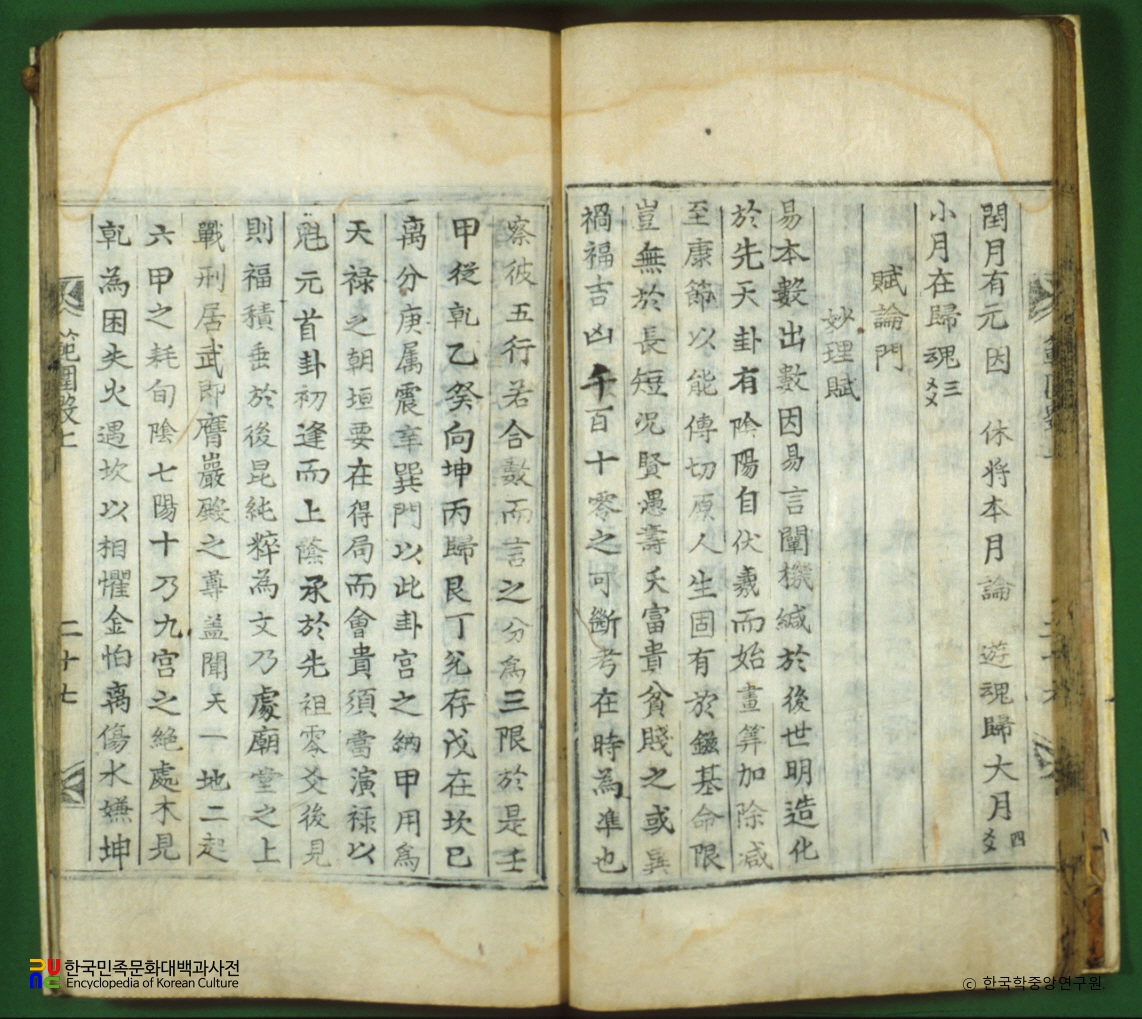 閏月有元因 休將本月論 遊魂歸大月 四爻
小月在歸魂 三爻
賦論門
妙理賦
易本數出數因易言闡機緘於後世明造化
於先天卦有陰陽自伏羲而始畫筭加除减
至康節以能傳切原人生固有於鎡基命限
豈無於長短况賢愚壽夭富貴貧賤之或異
禍福吉凶千百十零之可斷考在時為準也
察彼五行若合數而言之分爲三限於是壬
甲從乾乙癸向坤丙歸艮丁兊存戊在坎已
离分庚属震辛巽門以此卦宮之納甲用爲
天禄之朝垣要在得局而會貴須當演禄以
魁元首卦初逢而上陰承於先祖零爻後見
則福積垂於後昆純粹為文乃處廟堂之上
戰刑居武即膺巖殿之尊盖聞天一地二起
六甲之耗旬陰七陽十乃九宮之絶處木見
乾為困失火遇坎以相懼金怕离傷水嫌坤
範圍數上
二十七
한국민족문화대백과사전
Encyclopedia of Korean Culture
© 한국학중앙연구원